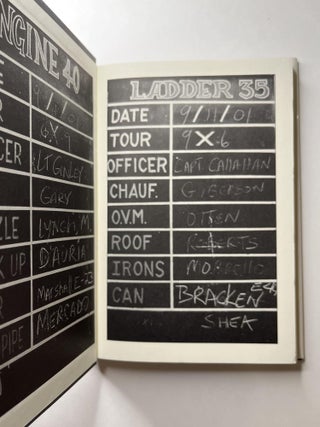 NGINE 40
9/11/01
6X9
CER
LT GINLEY
GARY
ZLE
LYNCH, M.
K UP
D'AURIA
MARSHALL E-23
MERCADO
PIPE
LADDER 35
DATE 9/11/01
TOUR 9X6
OFFICER CAPT CALLAHAN
CHAUF. GIBERSON
O.V.M. OTTEN
ROOF ROBERTS
IRONS MORELLO
CAN BRACKEN
SHEA